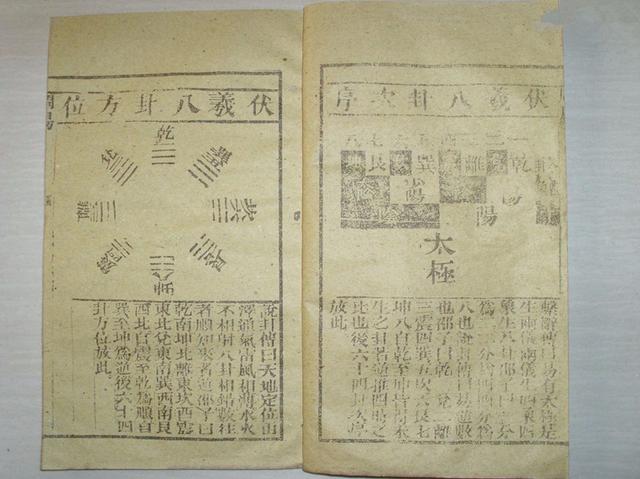 伏羲八卦次序
乾
離
巽
艮
陽
陽
太極
繫辭傳曰易有太極是
生兩儀兩儀生四象四
象生八卦邵子曰一分
為二二分為四四分為
八也說卦傳曰易逆數
也邵子曰乾一兌二離
三震四巽五坎六艮七
坤八自乾至坤皆得未
生之卦若逆推四時之
比也後六十四卦次序
放此
周易
伏羲八卦方位
乾
說卦傳曰天地定位山
澤通氣雷風相薄水火
不相射八卦相錯數往
者順知來者逆邵子曰
乾南坤北離東坎西震
東北兌東南巽西南艮
西北自震至乾為順自
巽至坤為逆後六十四
卦方位放此